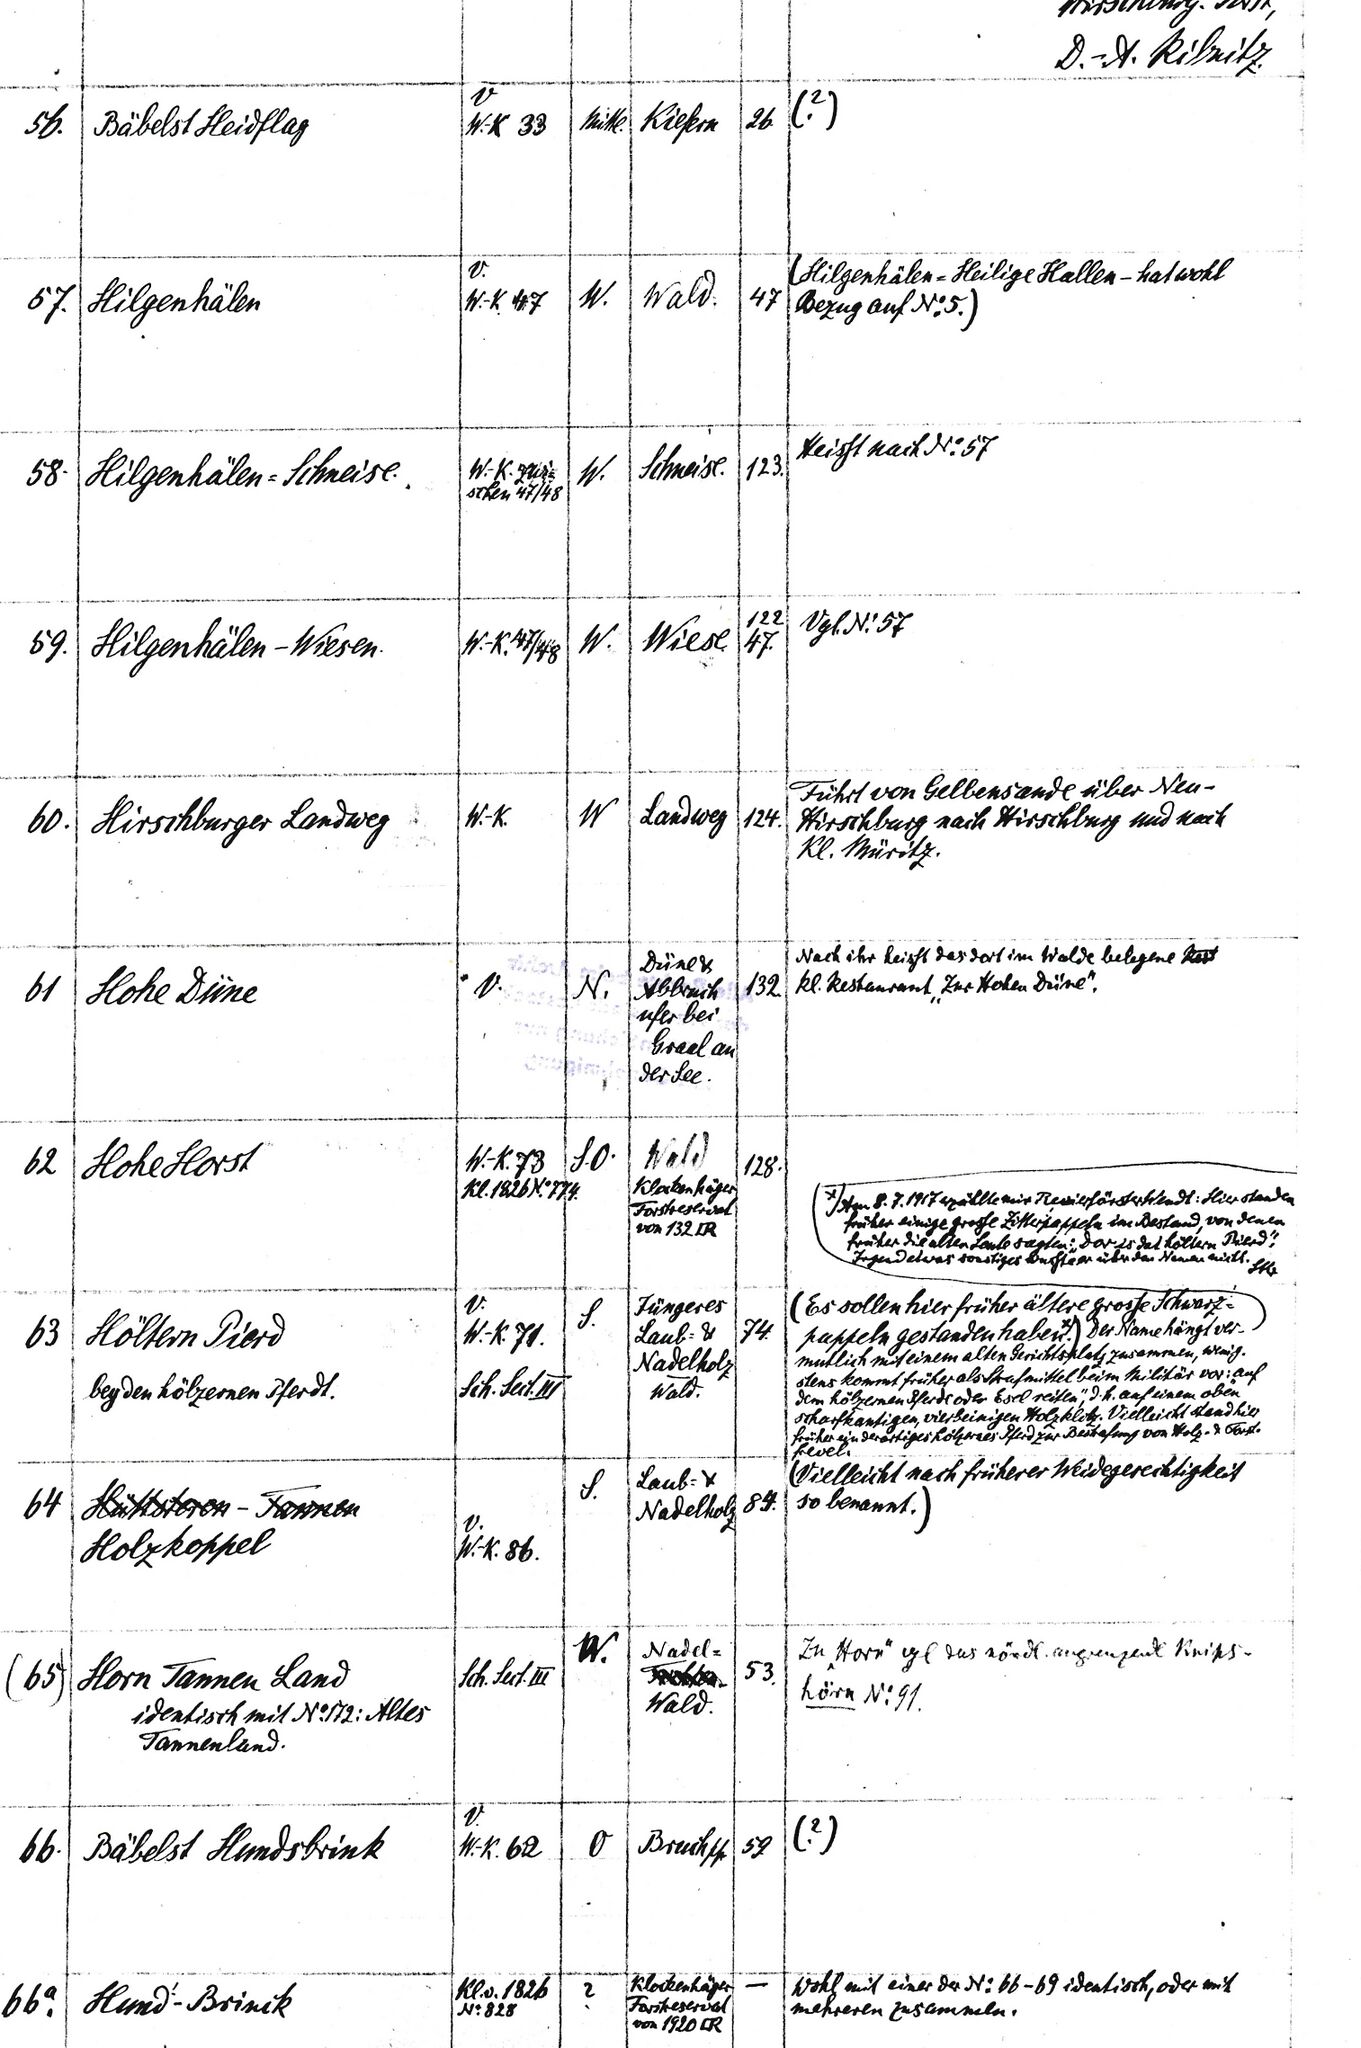 D.-A. Ribnitz.
56. Bäbelst Heidflag
V
W.-K 33
Mitte.
Kiefern
26
(?)
57. Hilgenhälen
V.
W.-K. 47
W.
Wald.
47
(Hilgenhälen = Heilige Hallen – hat wohl
Bezug auf No. 5.)
58. Hilgenhälen = Schneise.
W.-K. zwi=
schen 47/48
W.
Schneise.
123.
Heisst nach No. 57
59. Hilgenhälen – Wiesen.
W.-K. 47/48
W.
Wiese
122
47.
Vgl. No. 57
60. Hirschburger Landweg
W.-K.
W
Landweg
124.
Führt von Gelbensande über Neu-
Hirschburg nach Hirschburg und nach
Kl. Müritz.
61 Hohe Düne
V.
N.
Düne &
Abbruch
ufer bei
Graal an
der See.
132.
Nach ihr heisst das dort im Walde belegene Rest
kl. Restaurant „Zur Hohen Düne".
62 Hohe Horst
W.-K. 73
Kl. 1826 No. 774.
S.O.
Wald
Klockenhäger
Forstreservat
von 132 □R
128.
x) Am 8.7.1917 erzählte mir Revierförster Wendt: Hier standen
früher einige grosse Zitterpappeln im Bestand, von denen
früher die alten Leute sagten: „Dor is dat höltern Pierd".
Irgend etwas sonstiges wusste er über den Namen nicht.
63 Höltern Pierd
bey den hölzernen Pferdt.
V.
W.-K. 71.
Sch. Sect. III
S.
Jüngeres
Laub- &
Nadelholz
Wald.
74.
(Es sollen hier früher ältere grosse Schwarz=
pappeln gestanden haben.x) Der Name hängt ver-
mutlich mit einem alten Gerichtsplatz zusammen, wenig-
stens kommt früher als Strafmittel beim Militär vor: auf
dem hölzernen Pferde oder Esel reiten", d.h. auf einem oben
scharfkantigen, vierbeinigen Holzklotz. Vielleicht stand hier
früher ein derartiges hölzernes Pferd zur Bestrafung von Holz- & Forst-
frevel.
64
Tannen
Holzkoppel
V.
W.-K. 86.
S.
Laub- &
Nadelholz
84.
(Vielleicht nach früherer Weidegerechtigkeit
so benannt.)
(65) Horn Tannen Land
identisch mit No. 172: Altes
Tannenland.
Sch. Sect. III
W.
Nadel=
Wald.
53.
Zu „Horn" vgl das nördl. angrenzende Knips-
hörn No. 91.
66. Bäbelst Hundsbrink
V.
W.-K. 62
O
Bruch pp.
59
(?)
66a. Hund-Brinck
Kl. v. 1826
No. 828
?
Klockenhäger
Forstreservat
von 1920 □R
—
Wohl mit einer der No. 66–69 identisch, oder mit
mehreren zusammen.